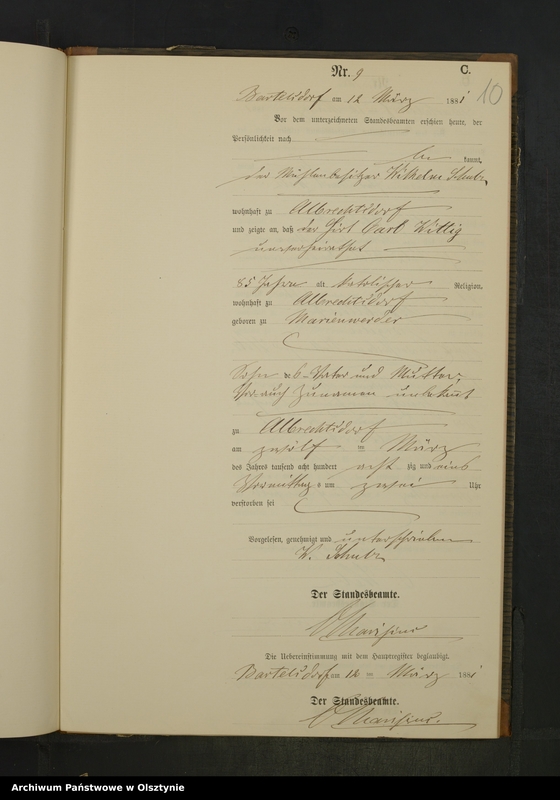 Nr. 9 C.
10
Bartelsdorf am 12 März 1881
Vor dem unterzeichneten Standesbeamten erschien heute, der
Persönlichkeit nach
be kannt,
der Mühlenbesitzer Wilhelm Schulz
wohnhaft zu Albrechtsdorf
und zeigte an, daß der Hirt Carl Willig
unverheirathet
85 Jahre alt katolischer Religion,
wohnhaft zu Albrechtsdorf
geboren zu Marienwerder
Sohn Vater und Mutter,
Vor auch Zunamen unbekannt
zu Albrechtsdorf
am zwölf ten März
des Jahres tausend acht hundert acht zig und eins
Vormittags um zwei Uhr
verstorben sei
Vorgelesen, genehmigt und unterschrieben
W. Schulz
Der Standesbeamte.
Die Uebereinstimmung mit dem Hauptregister beglaubigt.
Bartelsdorf am 12 ten März 1881
Der Standesbeamte.
Archiwum Państwowe w Olsztynie